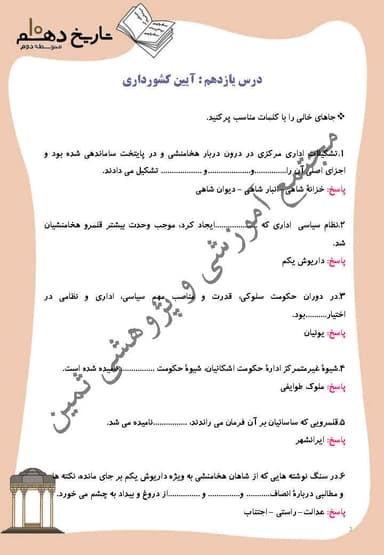 تاریخ دهم
متوسطه دوم
درس یازدهم : آیین کشورداری
❖ جاهای خالی را با کلمات مناسب پرکنید.
۱.تشکیلات اداری مرکزی در درون دربار هخامنشی و در پایتخت ساماندهی شده بود و
اجزای اصلی آن را..............و..................و .................. تشکیل می دادند.
پاسخ: خزانۀ شاهی – انبار شاهی – دیوان شاهی
۲.نظام سیاسی اداری که ..................ایجاد کرد، موجب وحدت بیشتر قلمرو هخامنشیان
شد.
پاسخ: داریوش یکم
۳.در دوران حکومت سلوکی، قدرت و مناصب مهم سیاسی، اداری و نظامی در
اختیار..........بود.
پاسخ: یونیان
۴.شیوۀ غیرمتمرکز ادارۀ حکومت اشکانیان، شیوۀ حکومت .............. نامیده شده است.
پاسخ: ملوک طوایفی
۵.قلمرویی که ساسانیان بر آن فرمان می راندند، ...............نامیده می شد.
پاسخ: ایرانشهر
۶.در سنگ نوشته هایی که از شاهان هخامنشی به ویژه داریوش یکم بر جای مانده، نکته ها
و مطالبی دربارۀ انصاف.......... و ..............و ..............از دروغ و بیداد به چشم می خورد.
پاسخ: عدالت– راستی – اجتناب
مجتمع آموزشی و پژوهشی ثمین